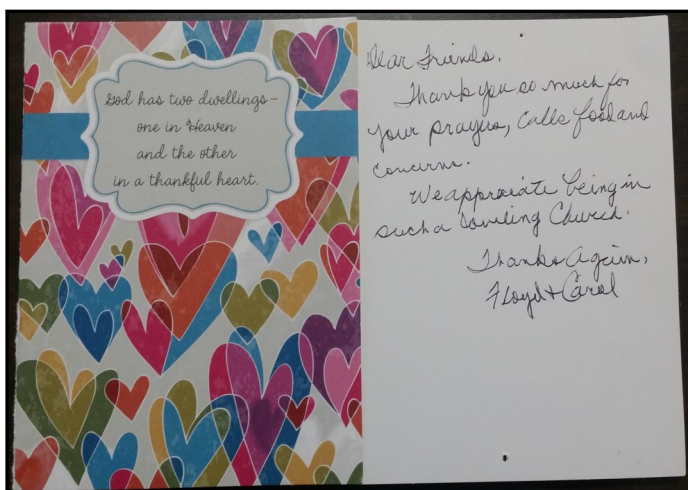 God has two dwellings –
one in Heaven
and the other
in a thankful heart.
Dear Friends,
Thank you so much for
your prayers, calls food and
concerns.
We appreciate being in
such a Church.
Thanks Again,
Floyd + Carol